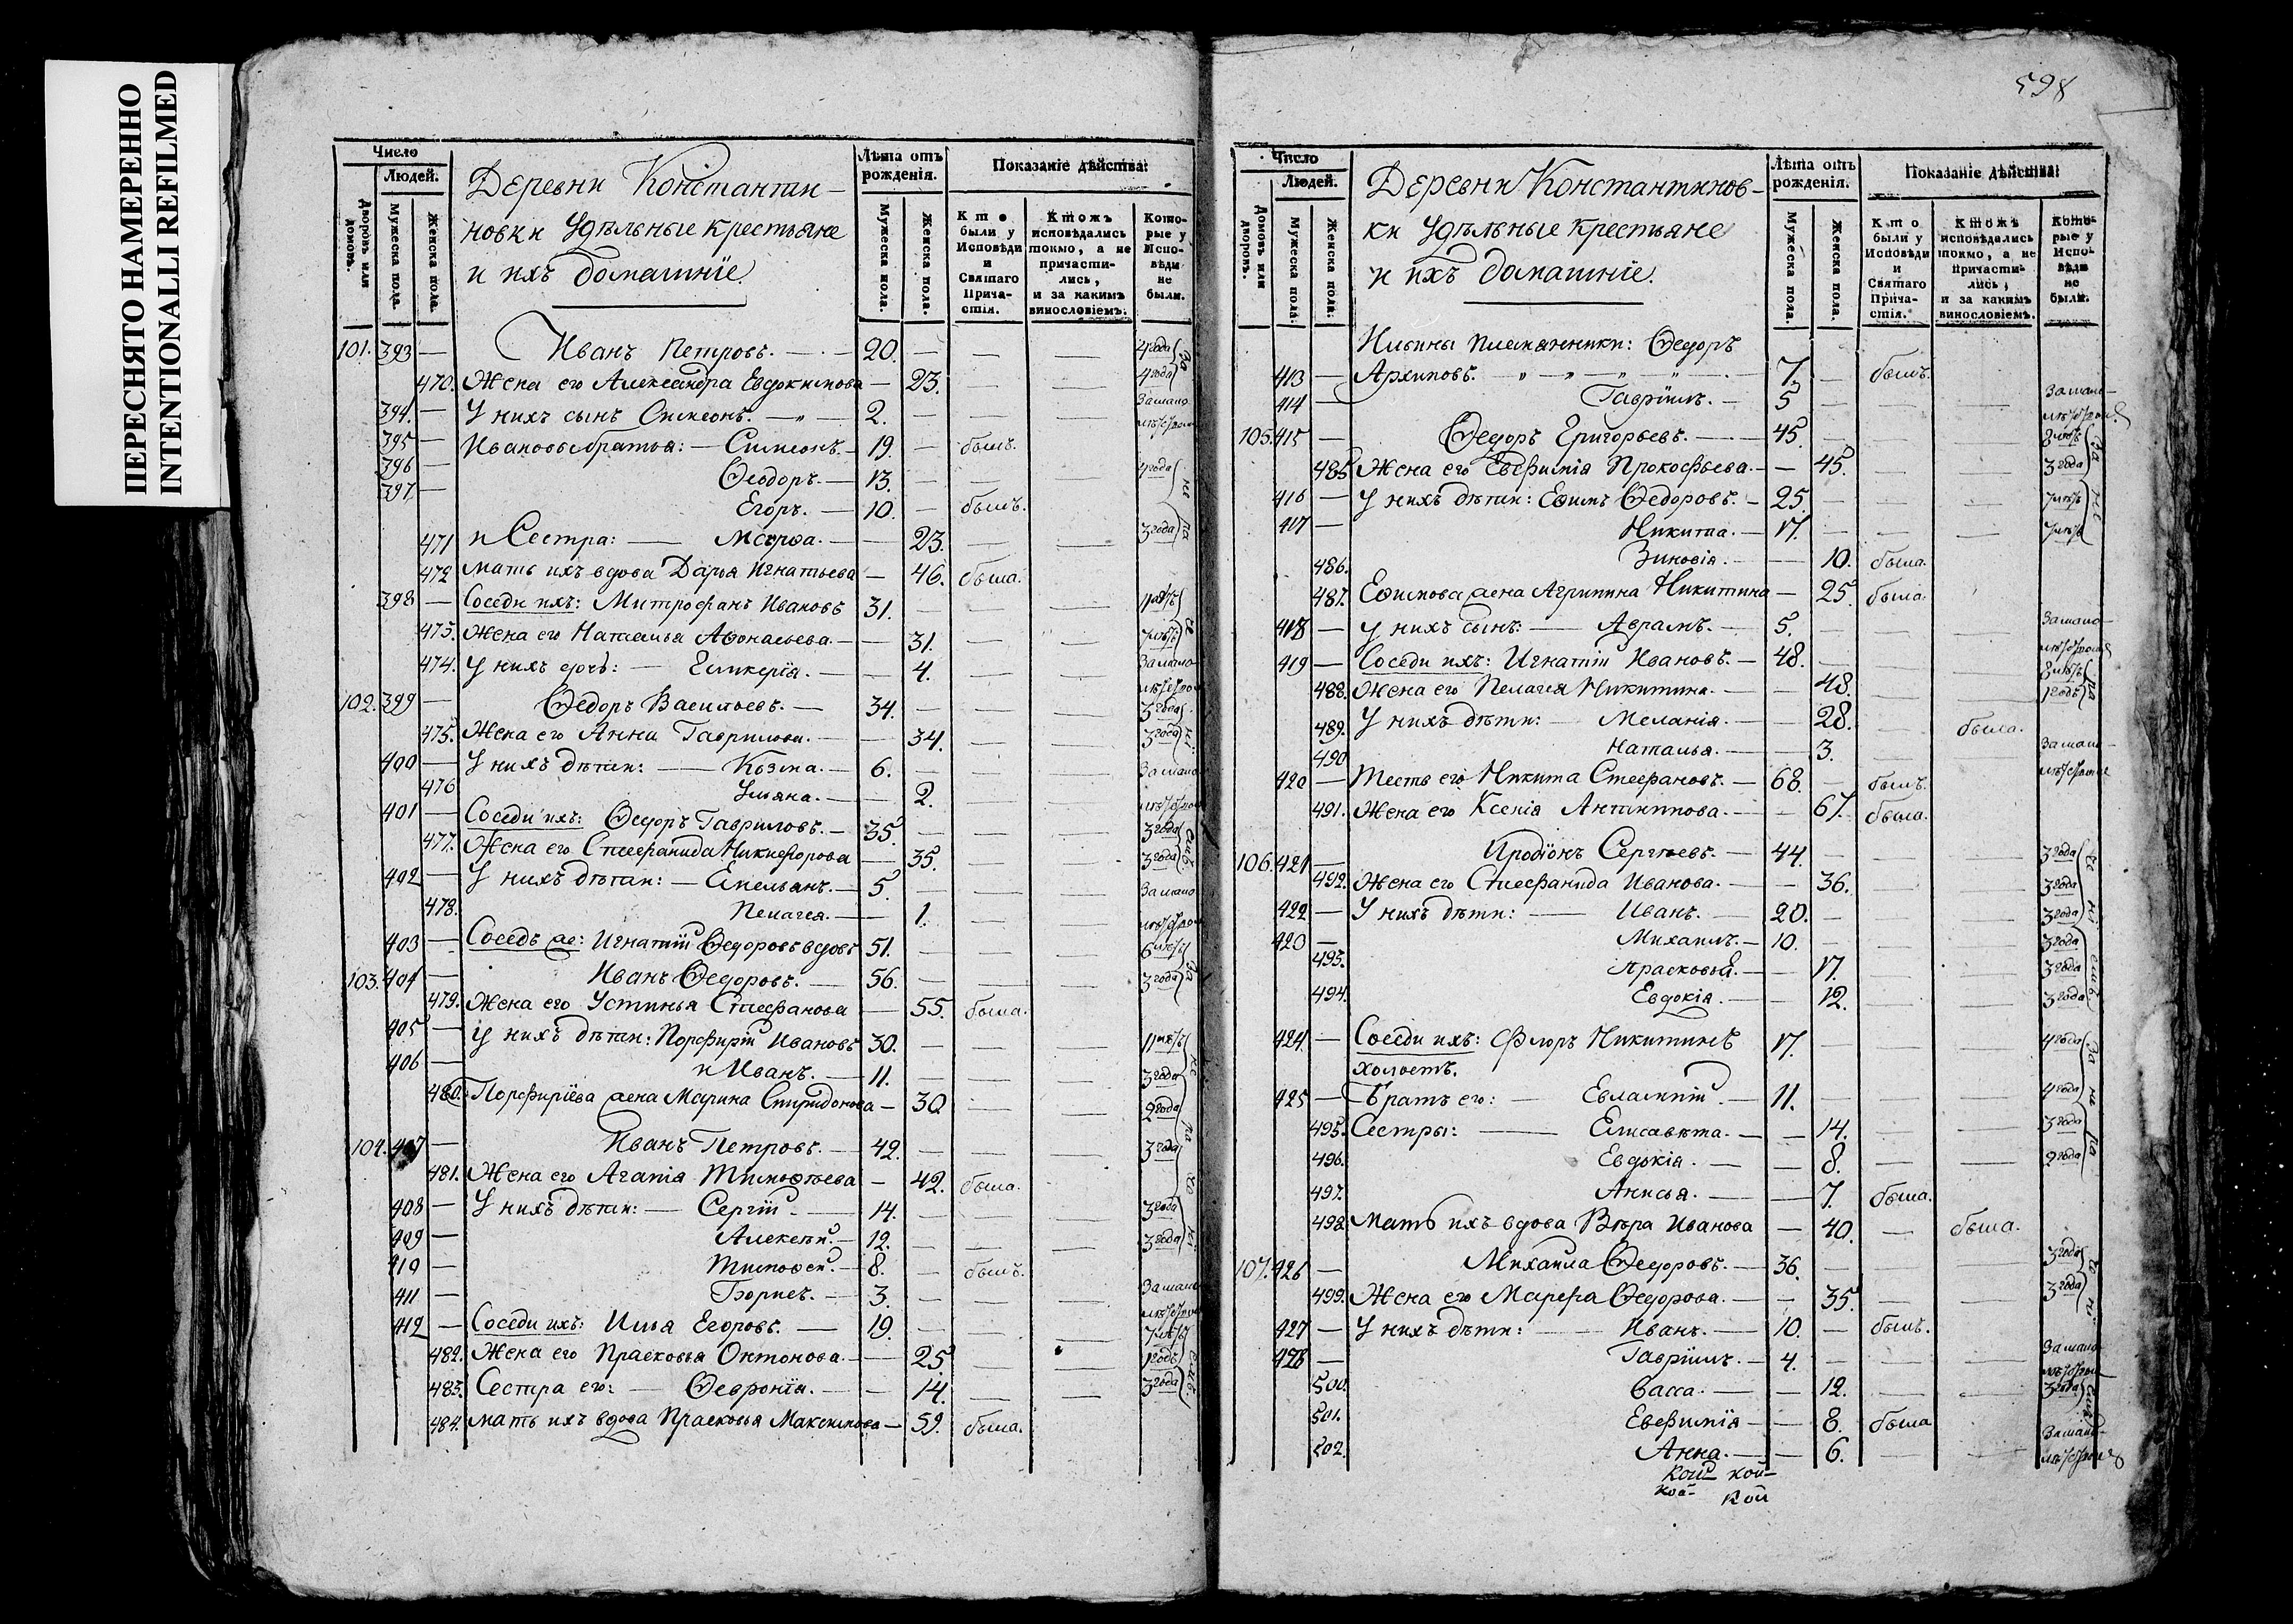 ПЕРЕСНЯТО НАМЕРЕННО
INTENTIONALLI REFILMED
Число
Людей.
Дворовъ или домовъ.
Мужеска пола.
Женска пола.
Деревни Константи-
новки Удѣльные крестьяне
и ихъ домашніе.
Лѣта отъ рожденія.
Мужеска пола.
Женска пола.
Показаніе дѣйства:
Кто были у Исповѣди и Святаго Прича-стія.
Ктожъ исповѣдались токмо, а не причасти-лись, и за какимъ винословіемъ.
Кото-рые у Испо-вѣди не были.
101. 393 — Иванъ Петровъ. — 20. — — — 4 года
470. Жена его Александра Евдокимова — 23. — — 4 года
394. — У них сынъ Симеонъ. — 2. — — — За мало-
395 — Ивановы братья: — Симеонъ. — 19. — былъ.
396 — Ѳеодоръ. — 13. — — — 4 года
397 — Егоръ. — 10. — былъ.
471 и Сестра: — Марѳа. — — 23. — — 3 года
472 мать ихъ вдова Дарья Игнатьева — 46. была.
398 — Соседи ихъ: Митрофанъ Ивановъ 31. — — —
473. Жена его Наталья Аѳонасьева. — — 31. — —
474. У нихъ дочь: — Гликерія. — — 4. — — За мало-
102. 399 — Ѳедоръ Васильевъ. — 34. — — — 3 года
475. Жена его Анна Гаврилова. — — 34. — — 3 года
400 — У нихъ дѣти: — Козма. — 6. — — — За мало-
476 Ульяна. — — 2. — —
401 — Соседи ихъ: Ѳедоръ Гавриловъ. — 35. — — — 3 года
477. Жена его Стефанида Никифорова — 35. — — 3 года
402 — У нихъ дѣти: — Емельянъ. — 5. — — — За мало-
478. Пелагея. — — 1. — —
403 — Соседъ же: Игнатій Ѳедоровъ вдовъ 51. — — —
103. 404 — Иванъ Ѳедоровъ. — 56. — — — 3 года
479. Жена его Устинья Стефанова — 55. была.
405 — У нихъ дѣти: Порфирій Ивановъ 30. — — —
406 — и Иванъ. — 11. — — — 3 года
480. Порфиріева жена Марина Спиридонова — 30 — — 2 года
104. 407 — Иванъ Петровъ. — 42. — — — 3 года
481. Жена его Агапія Тимоѳеева — 42. была.
408 — У нихъ дѣти: — Сергій. — 14. — — — 3 года
409 — Алексѣй. — 12. — — — 3 года
410 — Тимоѳей. — 8. — былъ.
411 — Борисъ. — 3. — — — За мало-
412 — Соседи ихъ: Илья Егоровъ. — 19. — — —
482. Жена его Прасковья Онтонова. — — 25 — — 1 годъ
483. Сестра его: — Ѳевронія. — — 14. — — 3 года
484. мать ихъ вдова Прасковья Максимова — 59. была.
598
Число
Людей.
Домовъ или дворовъ.
Мужеска пола.
Женска пола.
Деревни Константинов-
ки Удѣльные крестьяне
и ихъ домашніе.
Лѣта отъ рожденія.
Мужеска пола.
Женска пола.
Показаніе дѣйства:
Кто были у Исповѣди и Святаго Прича-стія.
Ктожъ исповѣдались токмо, а не причасти-лись, и за какимъ винословіемъ.
Кото-рые у Испо-вѣди не были.
Ильины племянники: Ѳедоръ
413 — Архиповъ. — 7. — былъ.
414 — Гавріилъ. — 5 — — — За мало-
105. 415 — Ѳедоръ Григорьевъ. — 45. — — —
485. Жена его Евфимія Прокофьева. — — 45. — — 3 года
416 — У нихъ дѣти: Ефимъ Ѳедоровъ. — 25. — — —
417 — Никита. — 17. — — —
486. Зиновія. — — 10. была.
487. Ефимова жена Агрипина Никитина — 25. была.
418 — У нихъ сынъ: — Аврамъ. — 5. — — — За мало-
419 — Соседи ихъ: Игнатій Ивановъ. — 48. — — —
488. Жена его Пелагея Никитина. — — 48. — — 1 годъ
489. У нихъ дѣти: — Меланія. — — 28. — была.
490 Наталья. — — 3. — — За мало-
420 — Тесть его Никита Стефановъ. — 68. — былъ.
491. Жена его Ксенія Антипова. — — 67. была.
106. 421 — Иродіонъ Сергѣевъ. — 44. — — — 3 года
492. Жена его Стефанида Иванова. — — 36. — — 3 года
422 — У нихъ дѣти: — Иванъ. — 20. — — — 3 года
420 — Михаилъ. — 10. — — — 3 года
493. Прасковья. — — 17. — — 3 года
494. Евдокія. — — 12. — — 3 года
424. — Соседи ихъ: Флоръ Никитинъ 17. — — — 4 года
холостъ.
425 — Братъ его: — Евлампій. — 11. — — — 4 года
495. Сестры: — Елисавета. — — 14. — — 3 года
496. Евдокія. — — 8. — — 2 года
497. Анисья. — — 7. была.
498. мать ихъ вдова Вѣра Иванова — 40. — была.
107. 426 — Михайла Ѳедоровъ. — 36. — — — 3 года
499. Жена его Марфа Ѳедорова. — — 35. — — 3 года
427 — У нихъ дѣти: — Иванъ. — 10. — былъ.
428 — Гавріилъ. — 4. — — — За мало-
500. Васса. — — 12. — — 3 года
501. Евфимія — — 8. была
502. Анна. — — 6. — — За мало-
кой кой-
кой- кой